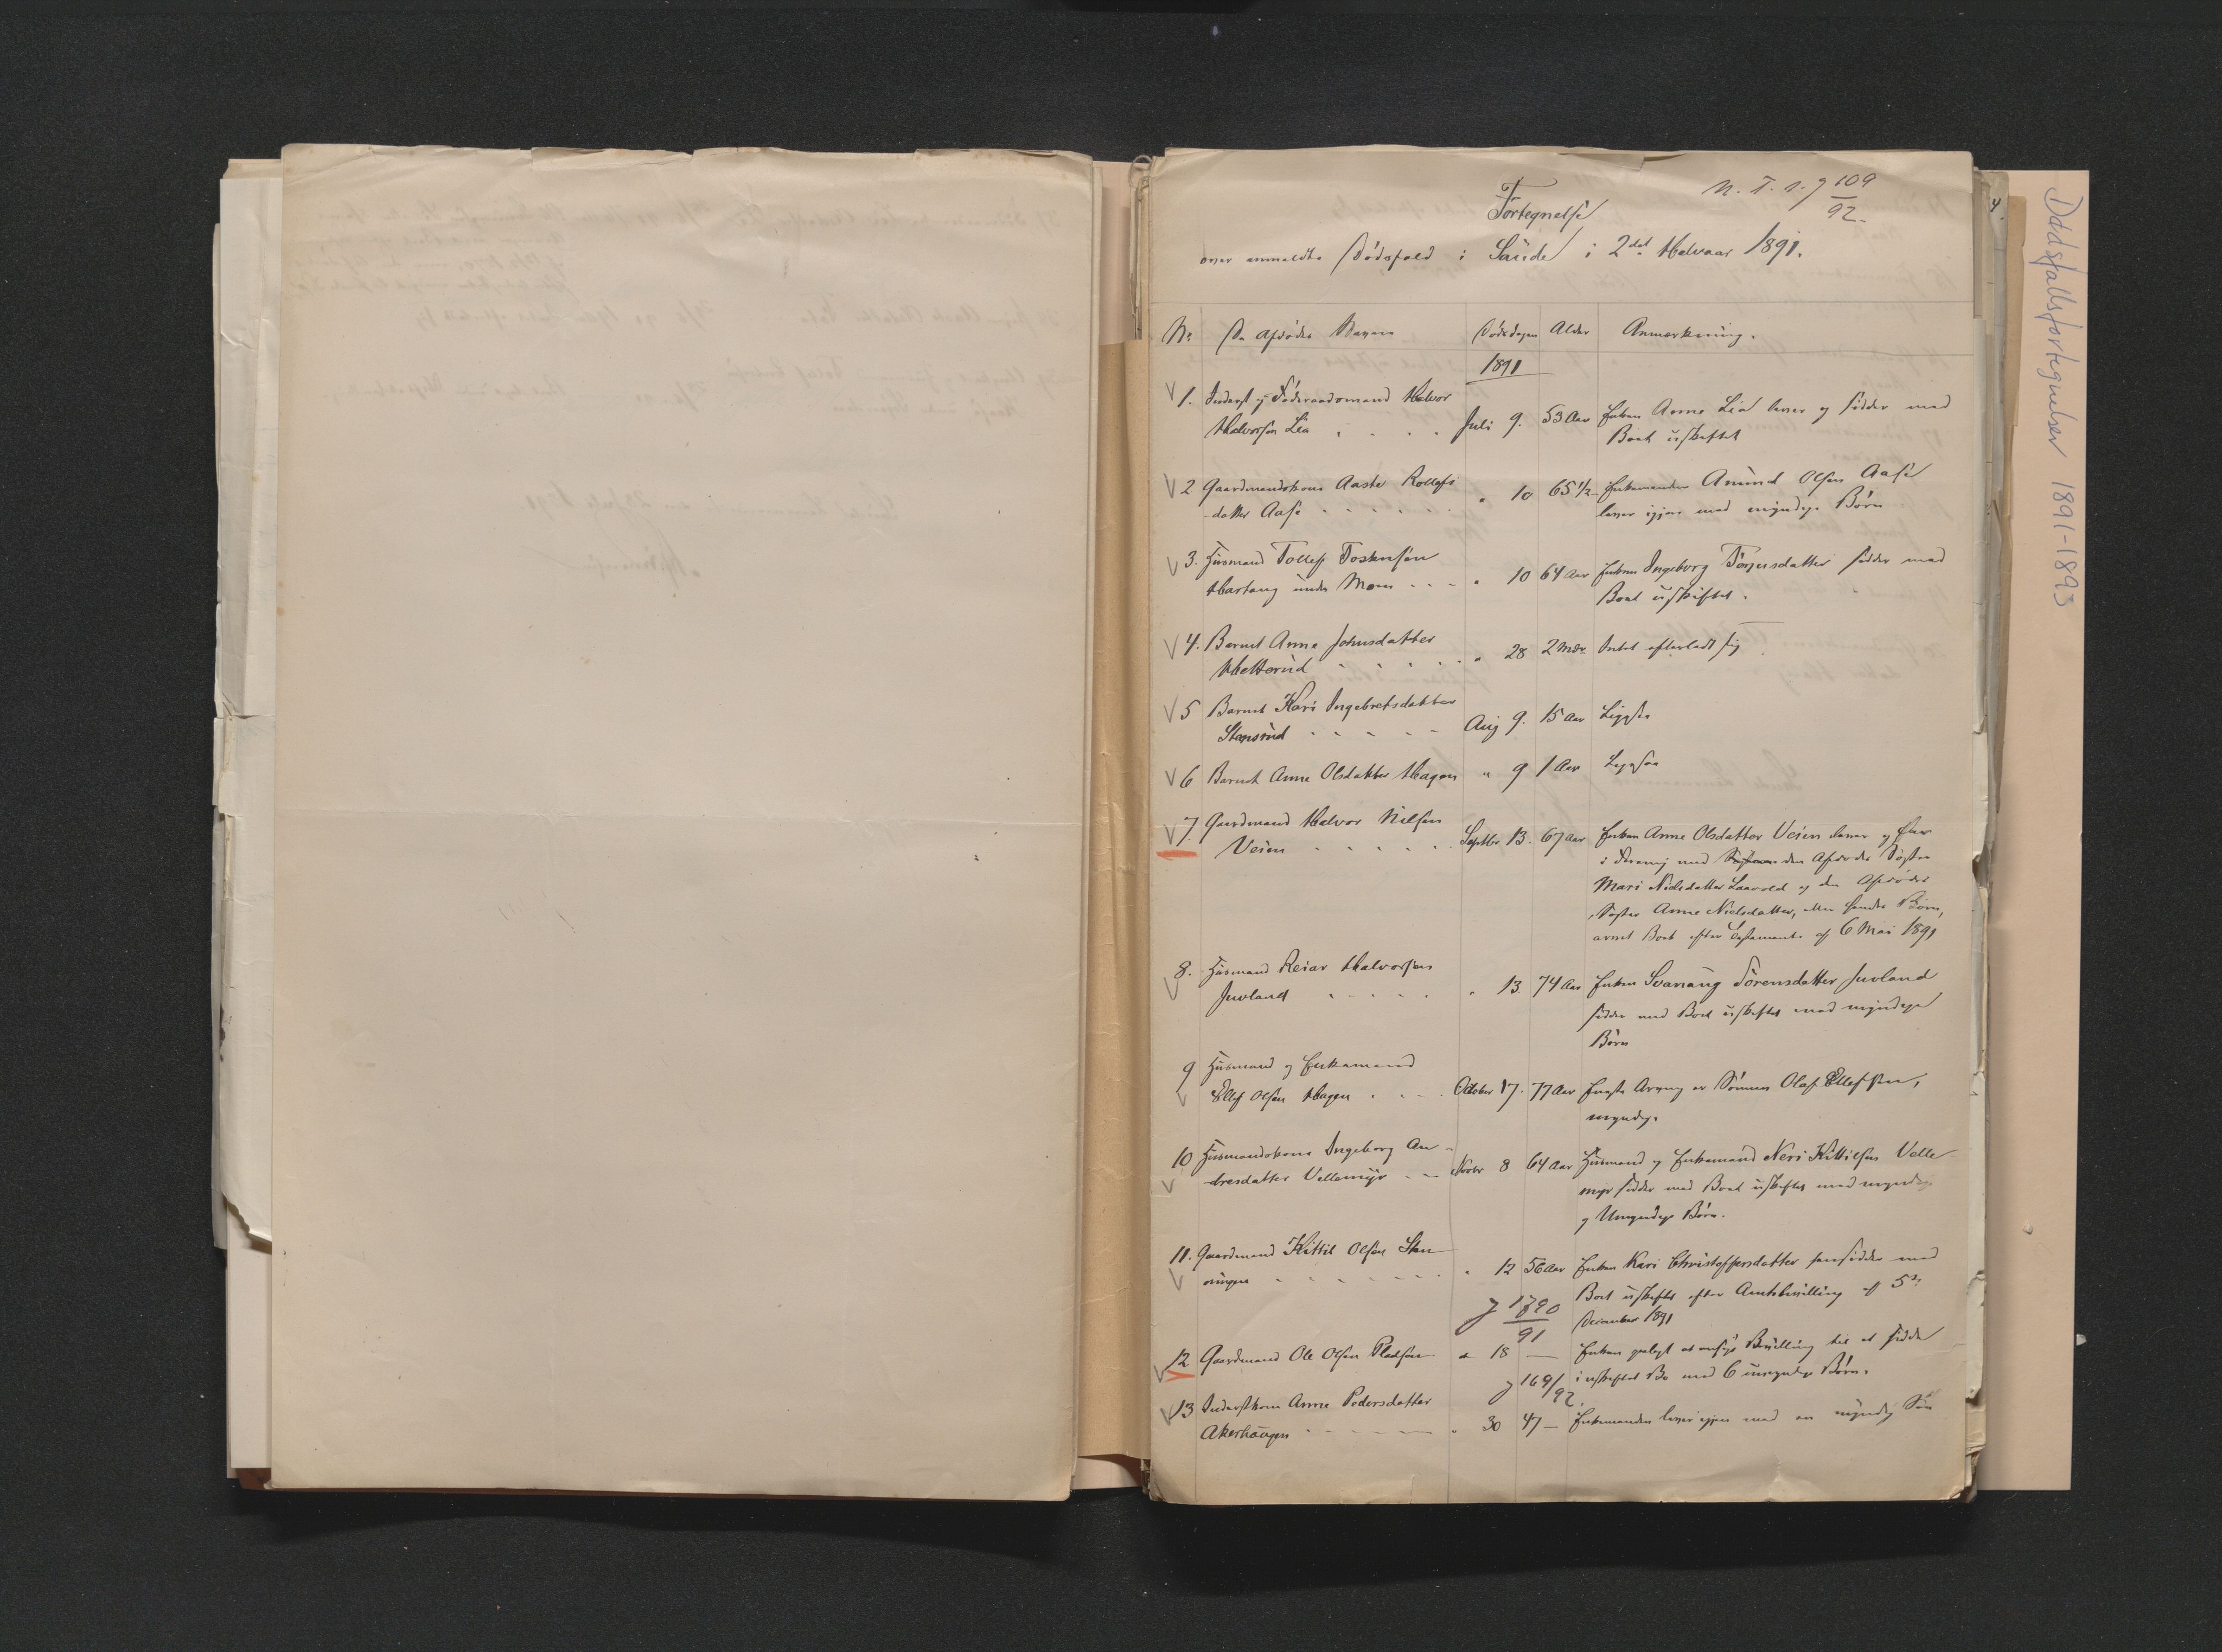 N. T. s. J 109/92.
Fortegnelse
over anmeldte Dødsfald i Saude i 2det Halvaar 1891.
No De afdødes Navne Dødsdagen Alder Anmærkning.
1891
1. Inderst og Føderaadsmand Halvor
Halvorsen Lia Juli 9. 53 Aar Enken Anne Lia lever og sidder med
Boet uskiftet
2 Gaardmandskone Aaste Rollefs
-datter Aase " 10 65 1/2 Enkemanden Amund Olsen Aase
lever igjen med myndige Børn
3. Husmand Tollef Tostensen
Hartaug under Moen " 10 64 Aar Enken Ingeborg Tørjusdatter sidder med
Boet uskiftet.
4. Barnet Anne Johnsdatter
Hetterud " 28 2 Mdr. Intet efterladt sig
5 Barnet Kari Ingebretsdatter
Stensrud Aug 9. 15 Aar Ligesaa
6 Barnet Anne Olsdatter Hagen " 9 1 Aar Ligesaa
7. Gaardmand Halvor Nilsen
Veien Septbr 13. 67 Aar Enken Anne Olsdatter Veien lever og
i med den Afdødes Søster
Mari Nielsdatter Laavold og den Afdødes
Søster Anne Nielsdatter, eller hendes Børn,
arvet Boet efter Testamente af 6 Mai 1891
8. Husmand Reiar Halvorsen
Juvland " 13. 74 Aar Enken Svanaug Sörensdatter Juvland
sidder med Boet uskiftet med myndige
Børn
9 Husmand og Enkemand
Ellef Olsen Hagen October 17. 77 Aar Eneste Arving er Sønnen Olaf Ellefsen,
myndig.
10 Husmandskone Ingeborg An-
dresdatter Vellemyr Novbr 8 64 Aar Husmand og Enkemand Neri Kittilsen Velle
myr sidder med Boet uskiftet med myndige
og Umyndige Børn.
11. Gaardmand Kittil Olsen Sten
" 12 56 Aar Enken Kari Christoffersdatter hensidder med
Boet uskiftet efter Amtsbevilling af 5te
J 1890/91 December 1891
12 Gaardmand Ole Olsen Pladsen " 18 — Enken paalagt at ansøge Bevilling til at sidde
J 169/92. i uskiftet Bo med 6 umyndige Børn.
13 Inderstkone Anne Pedersdatter
Akerhaugen " 30 47 — Enkemanden lever igjen med en myndig Søn
Dødsfallsfortegnelser 1891-1893